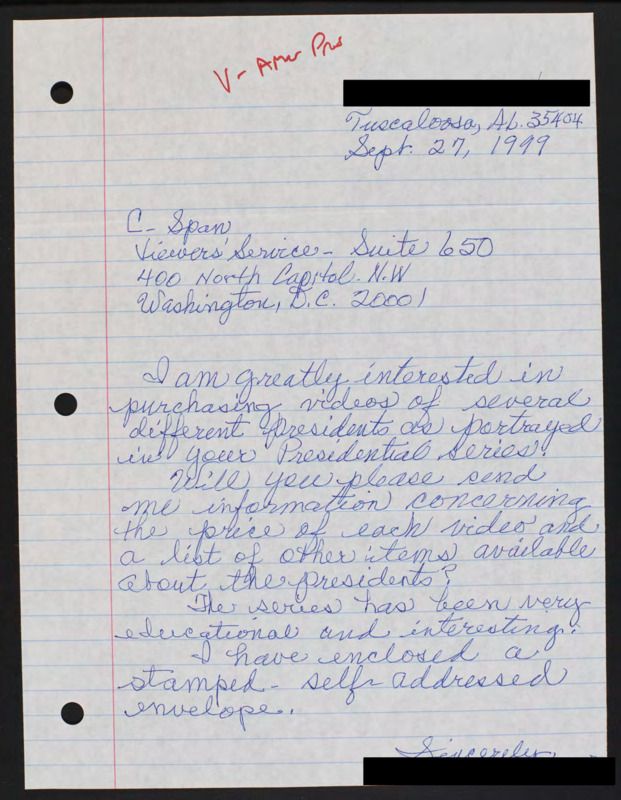 V- Amer Pres
Tuscaloosa, AL. 35404
Sept. 27, 1999
C- Span
Viewers' Service - Suite 650
400 North Capitol. N.W
Washington, D.C. 20001
I am greatly interested in
purchasing videos of several
different presidents as portrayed
in your Presidential series.
Will you please send
me information concerning
the price of each video and
a list of other items available
about the presidents?
The series has been very
educational and interesting.
I have enclosed a
stamped - self-addressed
envelope.
Sincerely,